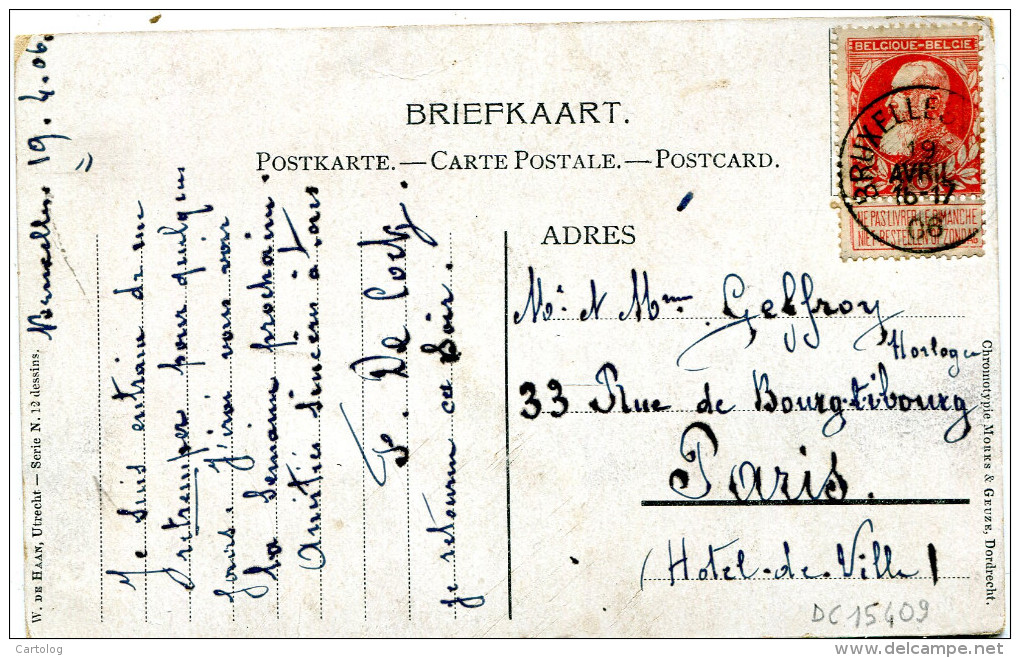 BRIEFKAART.
POSTKARTE.—CARTE POSTALE.—POSTCARD.
BELGIQUE-BELGIE
BRUXELLES
19
AVRIL
16-17
06
NE PAS LIVRER LE DIMANCHE
NIET BESTELLEN OP ZONDAG
Bruxelles 19.4.06.
Je suis entrain de me
retremper pour quelques
jours. J'irai vous voir
la semaine prochaine.
Amitiés sincères à tous
De
je retourne ce soir.
ADRES
Mr & Mme Geffroy
Horloger
33 Rue de Bourg-tibourg
Paris.
(Hotel-de-Ville)
DC15409
W. DE HAAN, Utrecht — Serie N. 12 dessins.
Chromotypie MORKS & GEUZE, Dordrecht.
Cartolog
www.delcampe.net